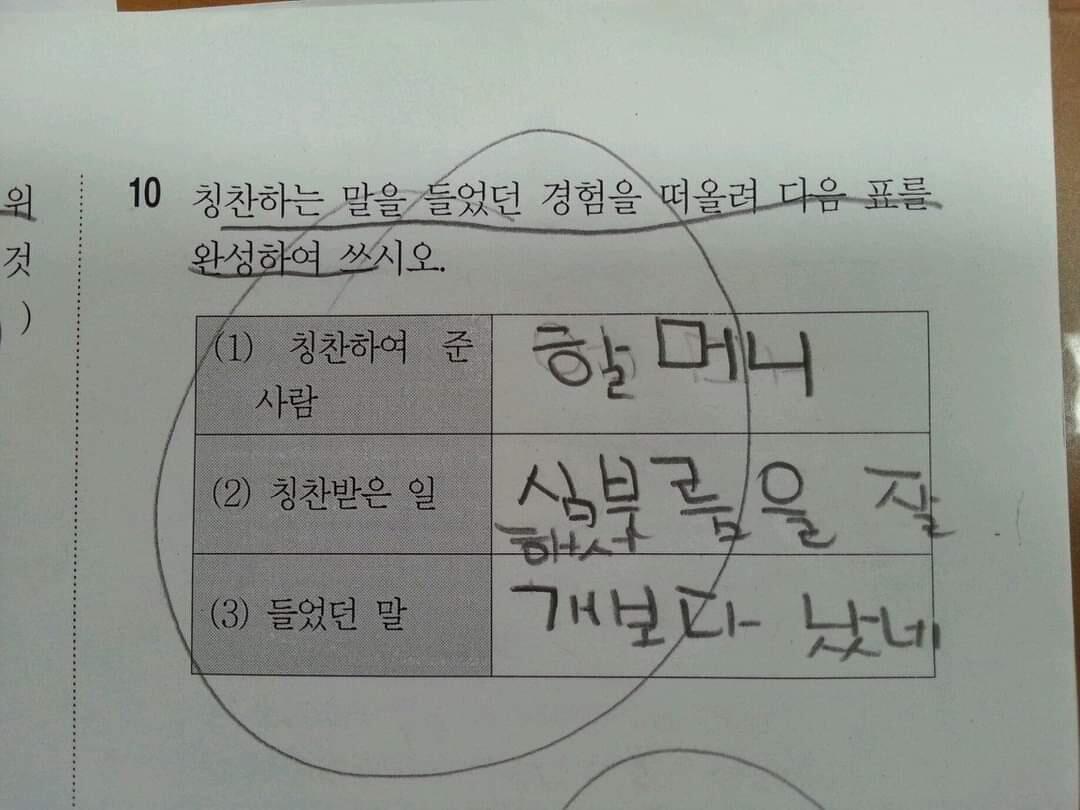 위
것
)
10 칭찬하는 말을 들었던 경험을 떠올려 다음 표를
완성하여 쓰시오.
(1) 칭찬하여 준
사람
할머니
(2) 칭찬받은 일
심부름을 잘
했
(3) 들었던 말
개보다 낫네